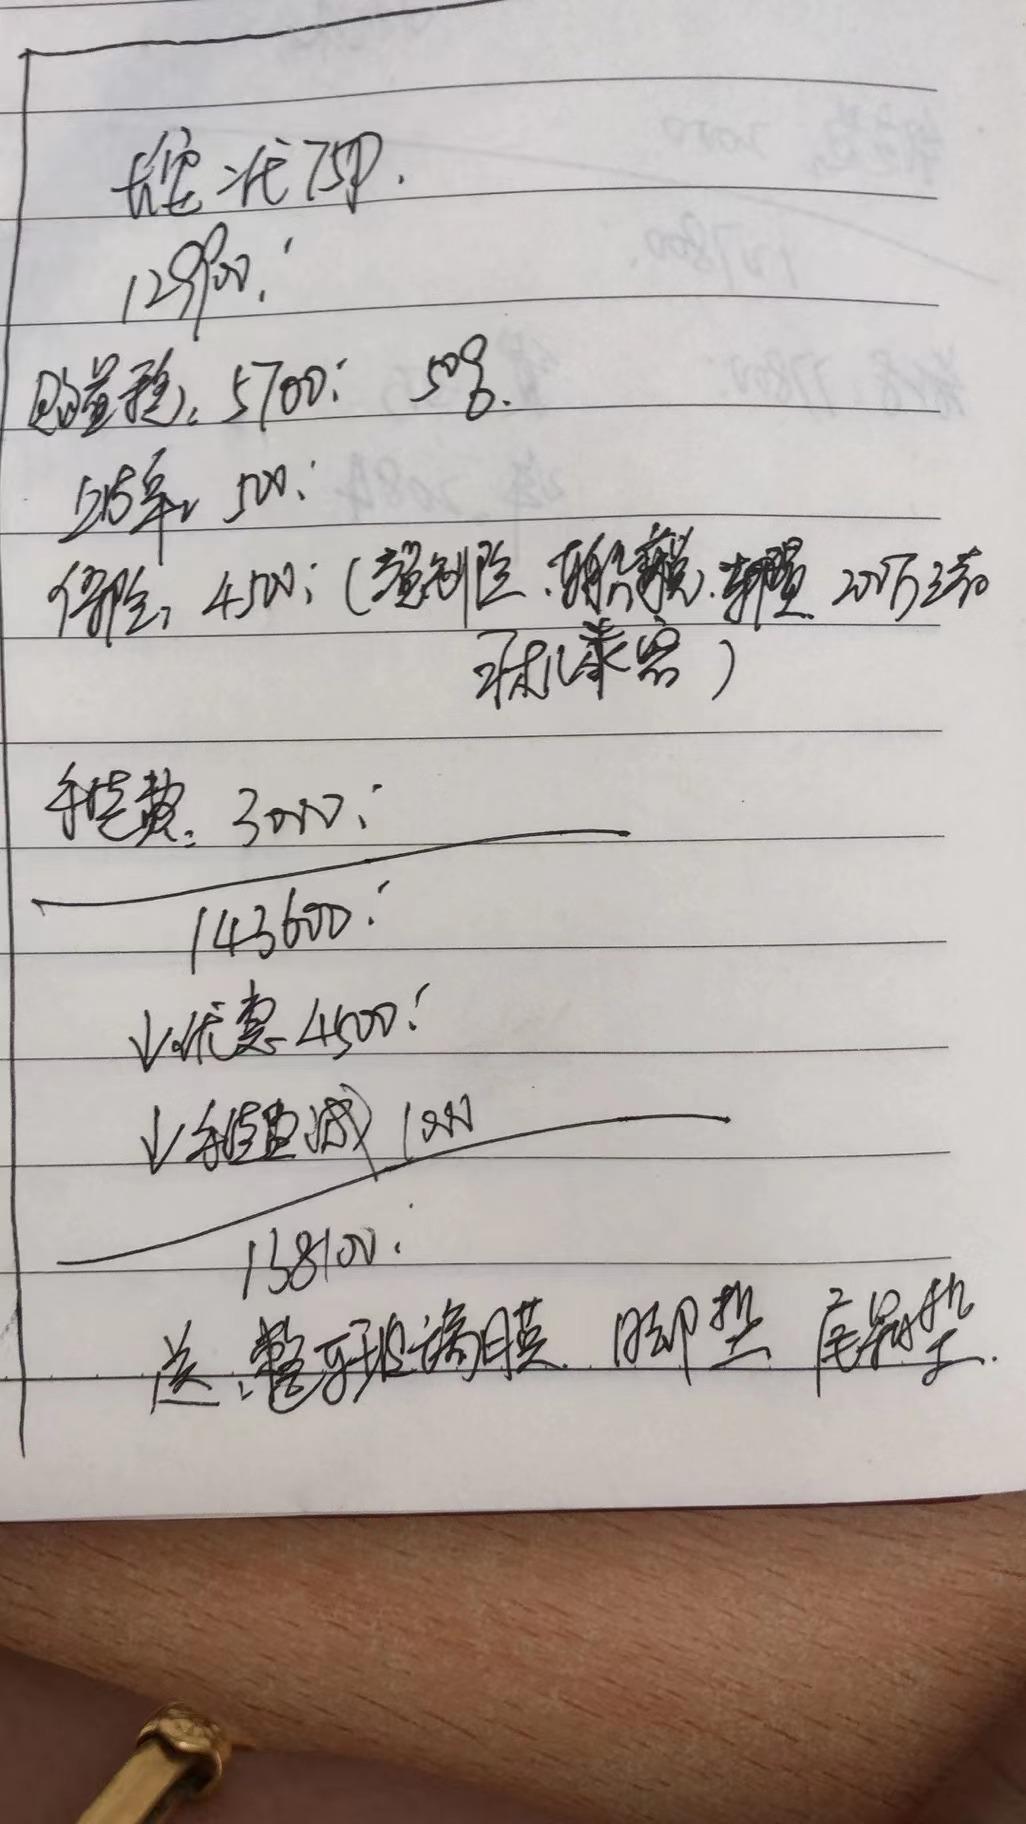 长安二代75P.
129900.
购置税: 5700. 50%.
上牌: 500.
保险: 4500. (强制险. 车船税. 车损 200万三者
司机乘客)
手续费: 3000.
143600.
↓优惠 4500.
↓手续费减 1000
138100.
送: 整车玻璃膜. 脚垫 尾箱垫.